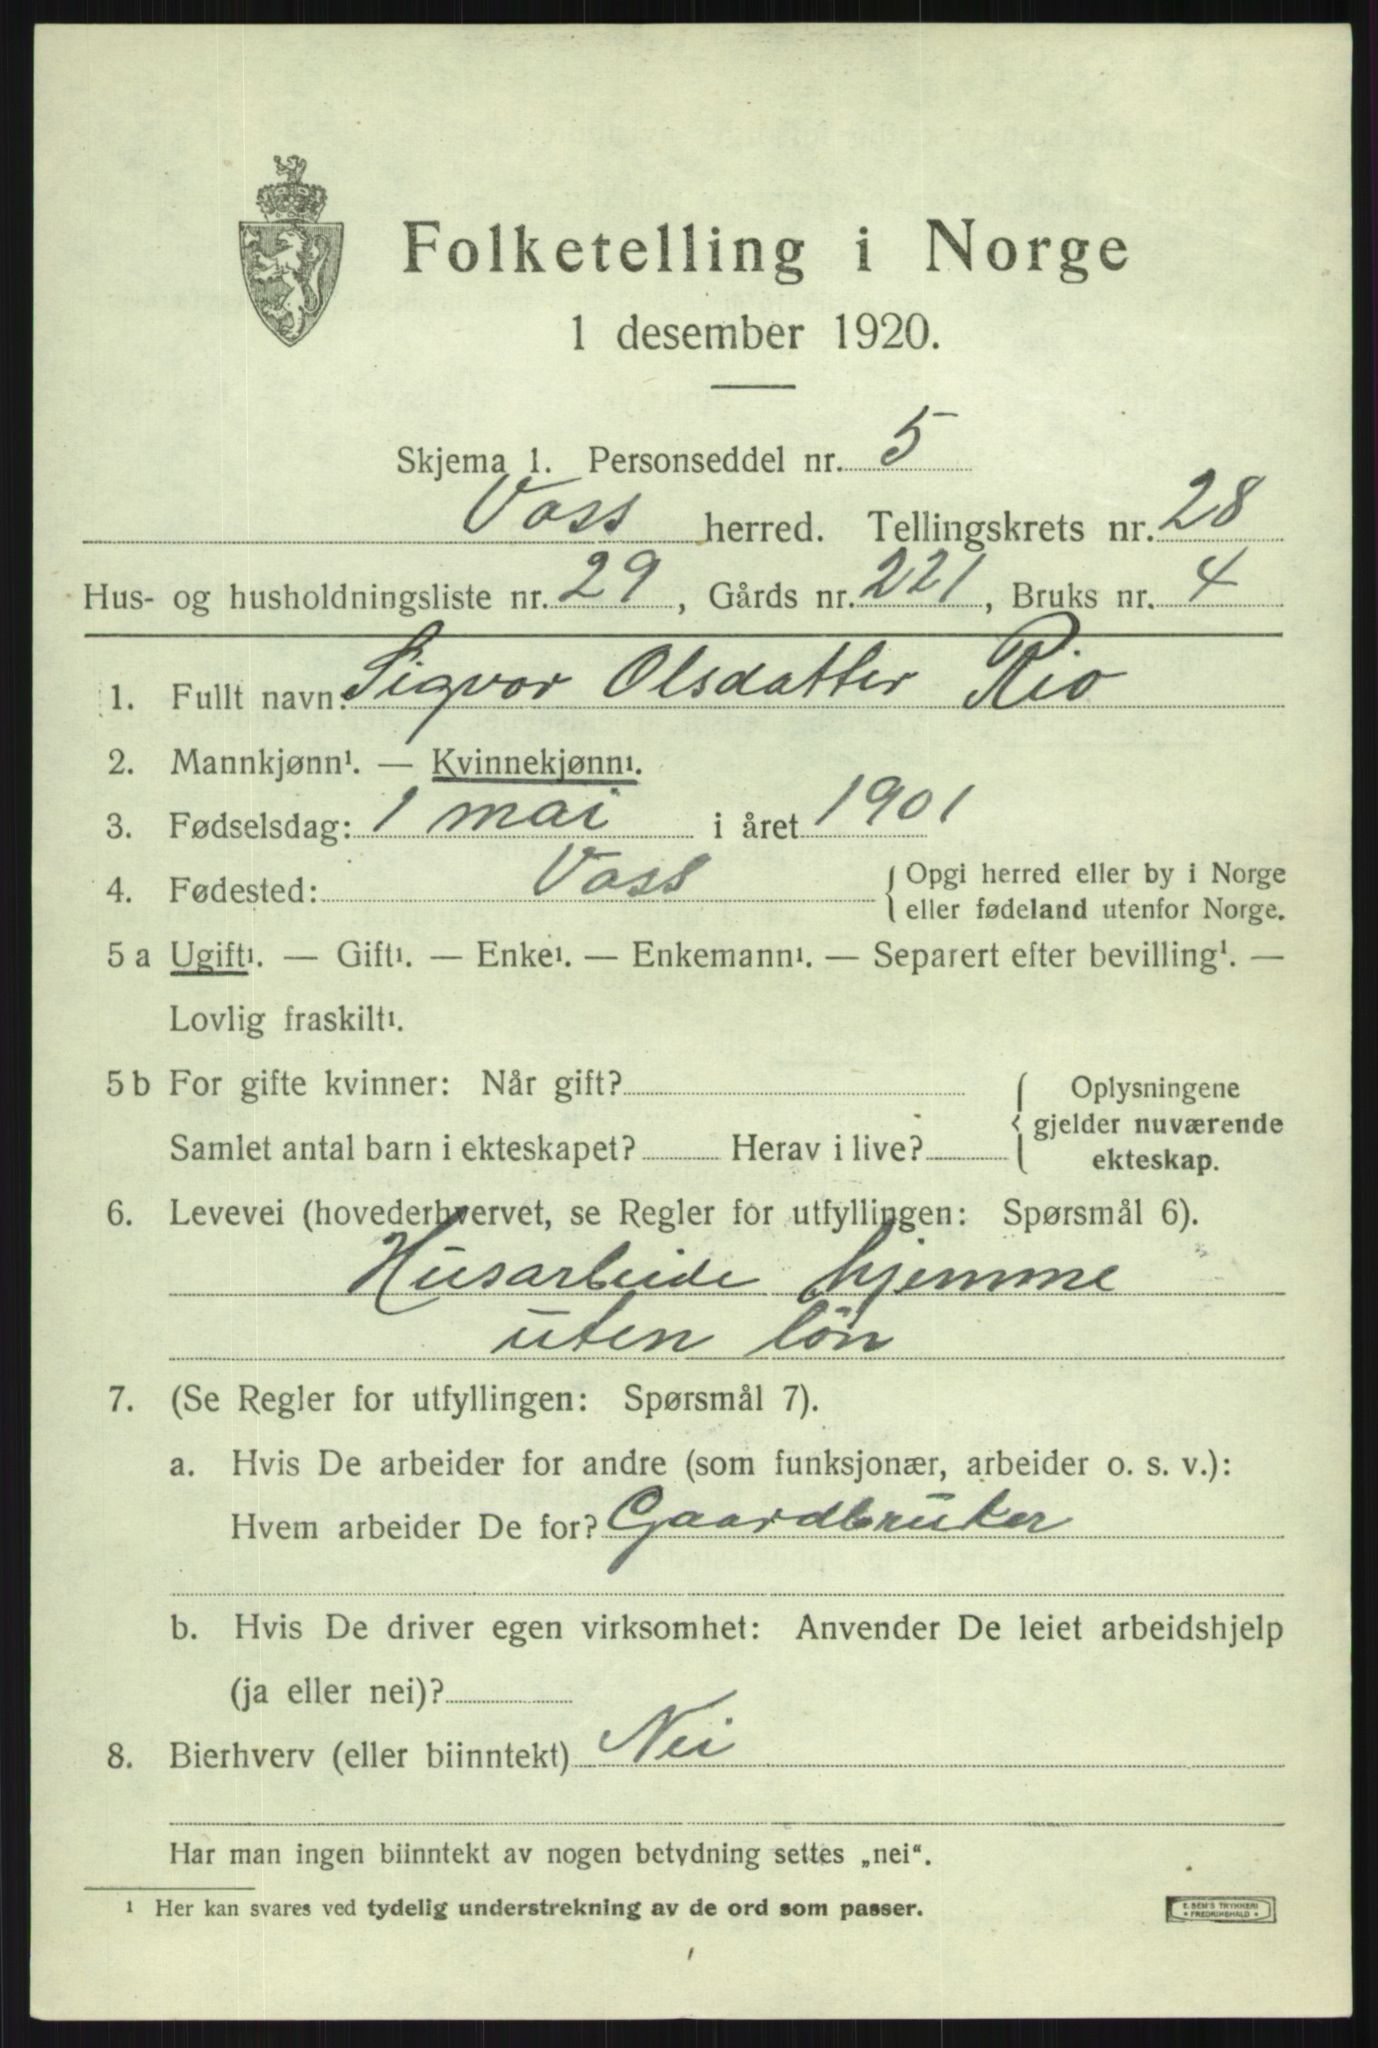 Folketelling i Norge
1 desember 1920.
Skjema 1. Personseddel nr. 5
Voss herred. Tellingskrets nr. 28
Hus- og husholdningsliste nr. 29, Gårds nr. 221, Bruks nr. 4
1. Fullt navn: Sigvor Olsdatter Rio
2. Mannkjønn¹. — Kvinnekjønn¹.
3. Fødselsdag: 1 mai i året 1901
4. Fødested: Voss { Opgi herred eller by i Norge
eller fødeland utenfor Norge.
5 a Ugift¹. — Gift¹. — Enke¹. — Enkemann¹. — Separert efter bevilling¹. —
Lovlig fraskilt¹.
5 b For gifte kvinner: Når gift? { Oplysningene
gjelder nuværende
Samlet antal barn i ekteskapet? Herav i live?
ekteskap.
6. Levevei (hovederhvervet, se Regler for utfyllingen: Spørsmål 6).
Husarbeide hjemme
uten løn
7. (Se Regler for utfyllingen: Spørsmål 7).
a. Hvis De arbeider for andre (som funksjonær, arbeider o. s. v.):
Hvem arbeider De for? Gaardbruker
b. Hvis De driver egen virksomhet: Anvender De leiet arbeidshjelp
(ja eller nei)?
8. Bierhverv (eller biinntekt) Nei
Har man ingen biinntekt av nogen betydning settes „nei“.
¹ Her kan svares ved tydelig understrekning av de ord som passer.
E. SEM'S TRYKKERI
* FREDRIKSHALD *